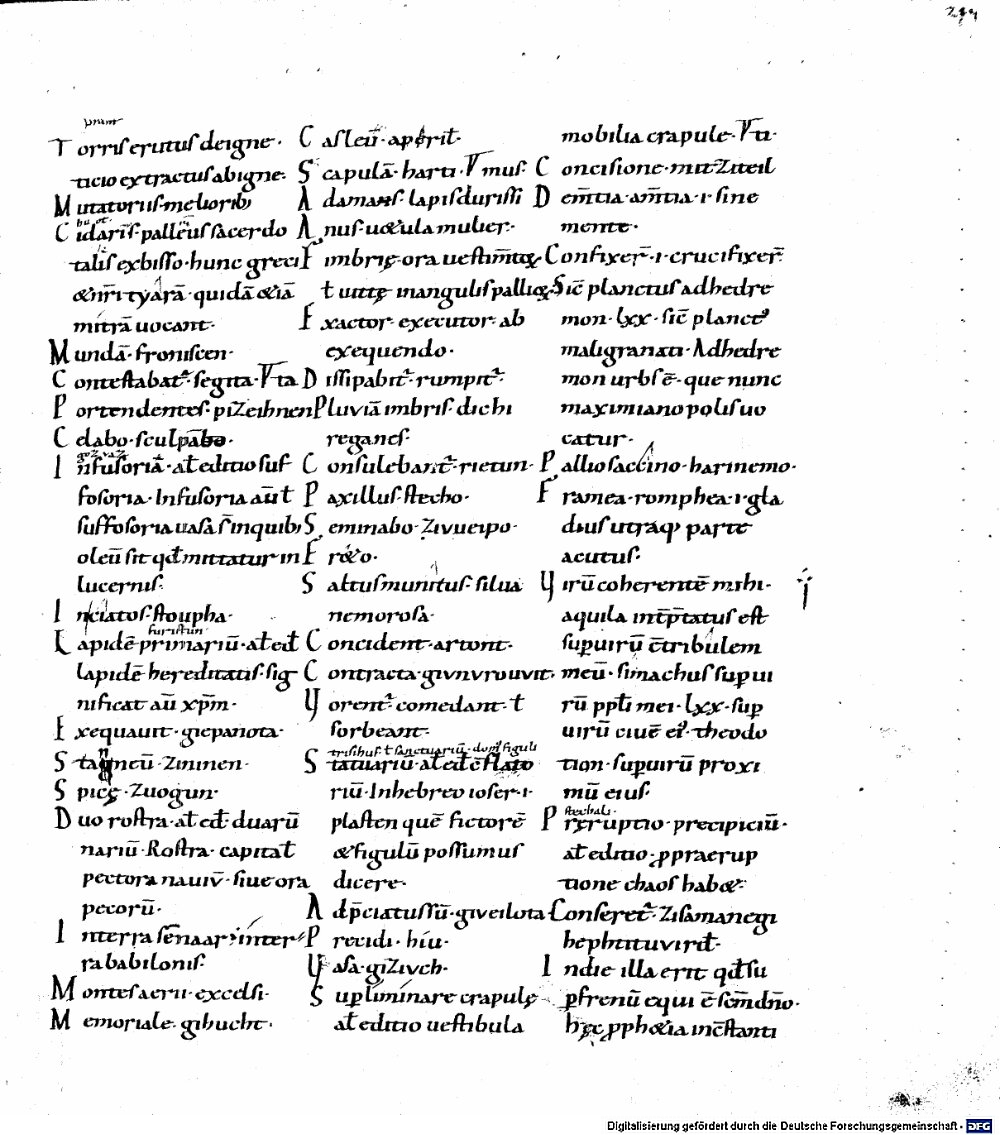 244
prant
Torris erutus deigne·
ticio extractus abigne·
Mutatoriis· meliorib;
Cidaris· palleus sacerdo
talis ex bisso· hunc greci
&nr̄i tyarā· quidā &iā
mitrā uocant·
Mundā· froniscen·
Contestabat᷑· segita·
Portendentes· piZeihnen
Celabo· sculpabo·
Infusoriā· aƚ editio suf
fosoria· Infusoria aūt
suffosoria uasa s̄ inquib;
oleū sit qđ mittatur in
lucernis·
Inciatos· stoupha·
furistun
Lapidē primariū· aƚ eđ
lapidē hereditatis· sig
nificat aū xp̄m·
Exequauit· giepanota·
Stagneū· zininen·
Spicę· Zuogun·
Duo rostra· aƚ eđ duarū
nariū· Rostra· capita ƚ
pectora nauiū· siue ora
pecorū·
In terra sēnaar· in ter
ra babilonis·
Montes aerii· excelsi·
Memoriale· gihucht·
Casleū· aperit·
Scapulā· harti·
Adamans· lapis durissi
mus·
Anus· u&ula mulier·
Fimbrię· ora uestim̄tę
ƚ uittę inangulis pallię·
Exactor· executor· ab
exequendo·
Dissipabit᷑· rumpit᷑·
Pluviā imbris· dichi
reganes·
Consulebant᷑· rietun·
Paxillus· stecho·
Seminabo· Zivueipo·
Er&o·
Saltus munitus· silua
nemorosa·
Concident· artont·
Contracta· givnvrouvit·
Vorent᷑· comedant· ƚ
sorbeant·
Statuariū· aƚ eđ ē
riū· In hebreo ioser· i·
plasten quē fictorē
&figulū possumus
dicere·
Adp̄ciatus sū· giveilota
Precidi· híu·
Vasa· giZivch·
Supliminare crapulę
aƚ editio uestibula
mobilia crapule·
Concisione· mitZiteil
Dem̄tia· am̄tia· i· sine
mente·
Confixer̄· i· crucifixer̄·
Sic̄ planctus adhedre
mon· lxx· sic̄ planct᷒
maligranati· Adhedre
mon urbs ē· que nunc
maximianopolis uo
catur·
Pallio saccino· harinemo·
Framea· romphea· i· gla
dius utraq; parte
acutus·
Virū coherentē mihi·
aquila int̄p̄tatus est
sup uirū c̄tribulem
meū· simachus sup ui
rū ppƚi mei· lxx· sup
uirū ciuē ei᷒· theodo
tion· sup uirū proxi
mū eius·
stechali·
Preruptio· precipiciū·
aƚ editio· p praerup
tione chaos hab&·
Conseret᷑· Zisamanegi
hephtituvirđ·
In die illa erit qđ su
p frenū equi ē sc̄m dn̄o·
hęc pph&ia inc̄stanti
Digitalisierung gefördert durch die Deutsche Forschungsgemeinschaft · DFG